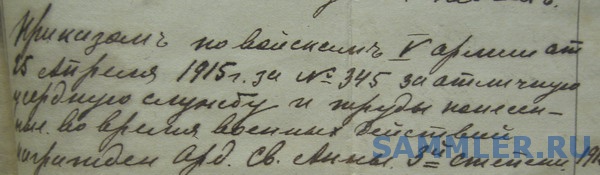 Приказомъ по войскамъ V армии от
25 Апреля 1915 г. за № 345 за отличную
усердную службу и труды понесен-
ные во время военных действий
награжден Орд. Св. Анны 3й степени. 191
SAMMLER.RU